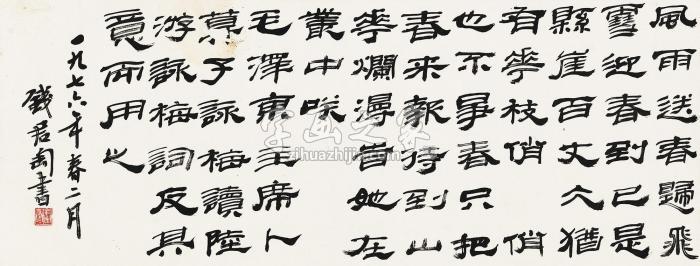 風雨送春歸飛
雪迎春到已是
縣崖百丈仌猶
有華枝俏俏
也不爭春只把
春來報待到山
華爛漫旹她在
叢中咲
毛澤東主席卜
算子詠梅讀陸
游詠梅詞反其
意而用之
一九七六年春二月
錢君匋書
字画之家
zihuazhijia.com